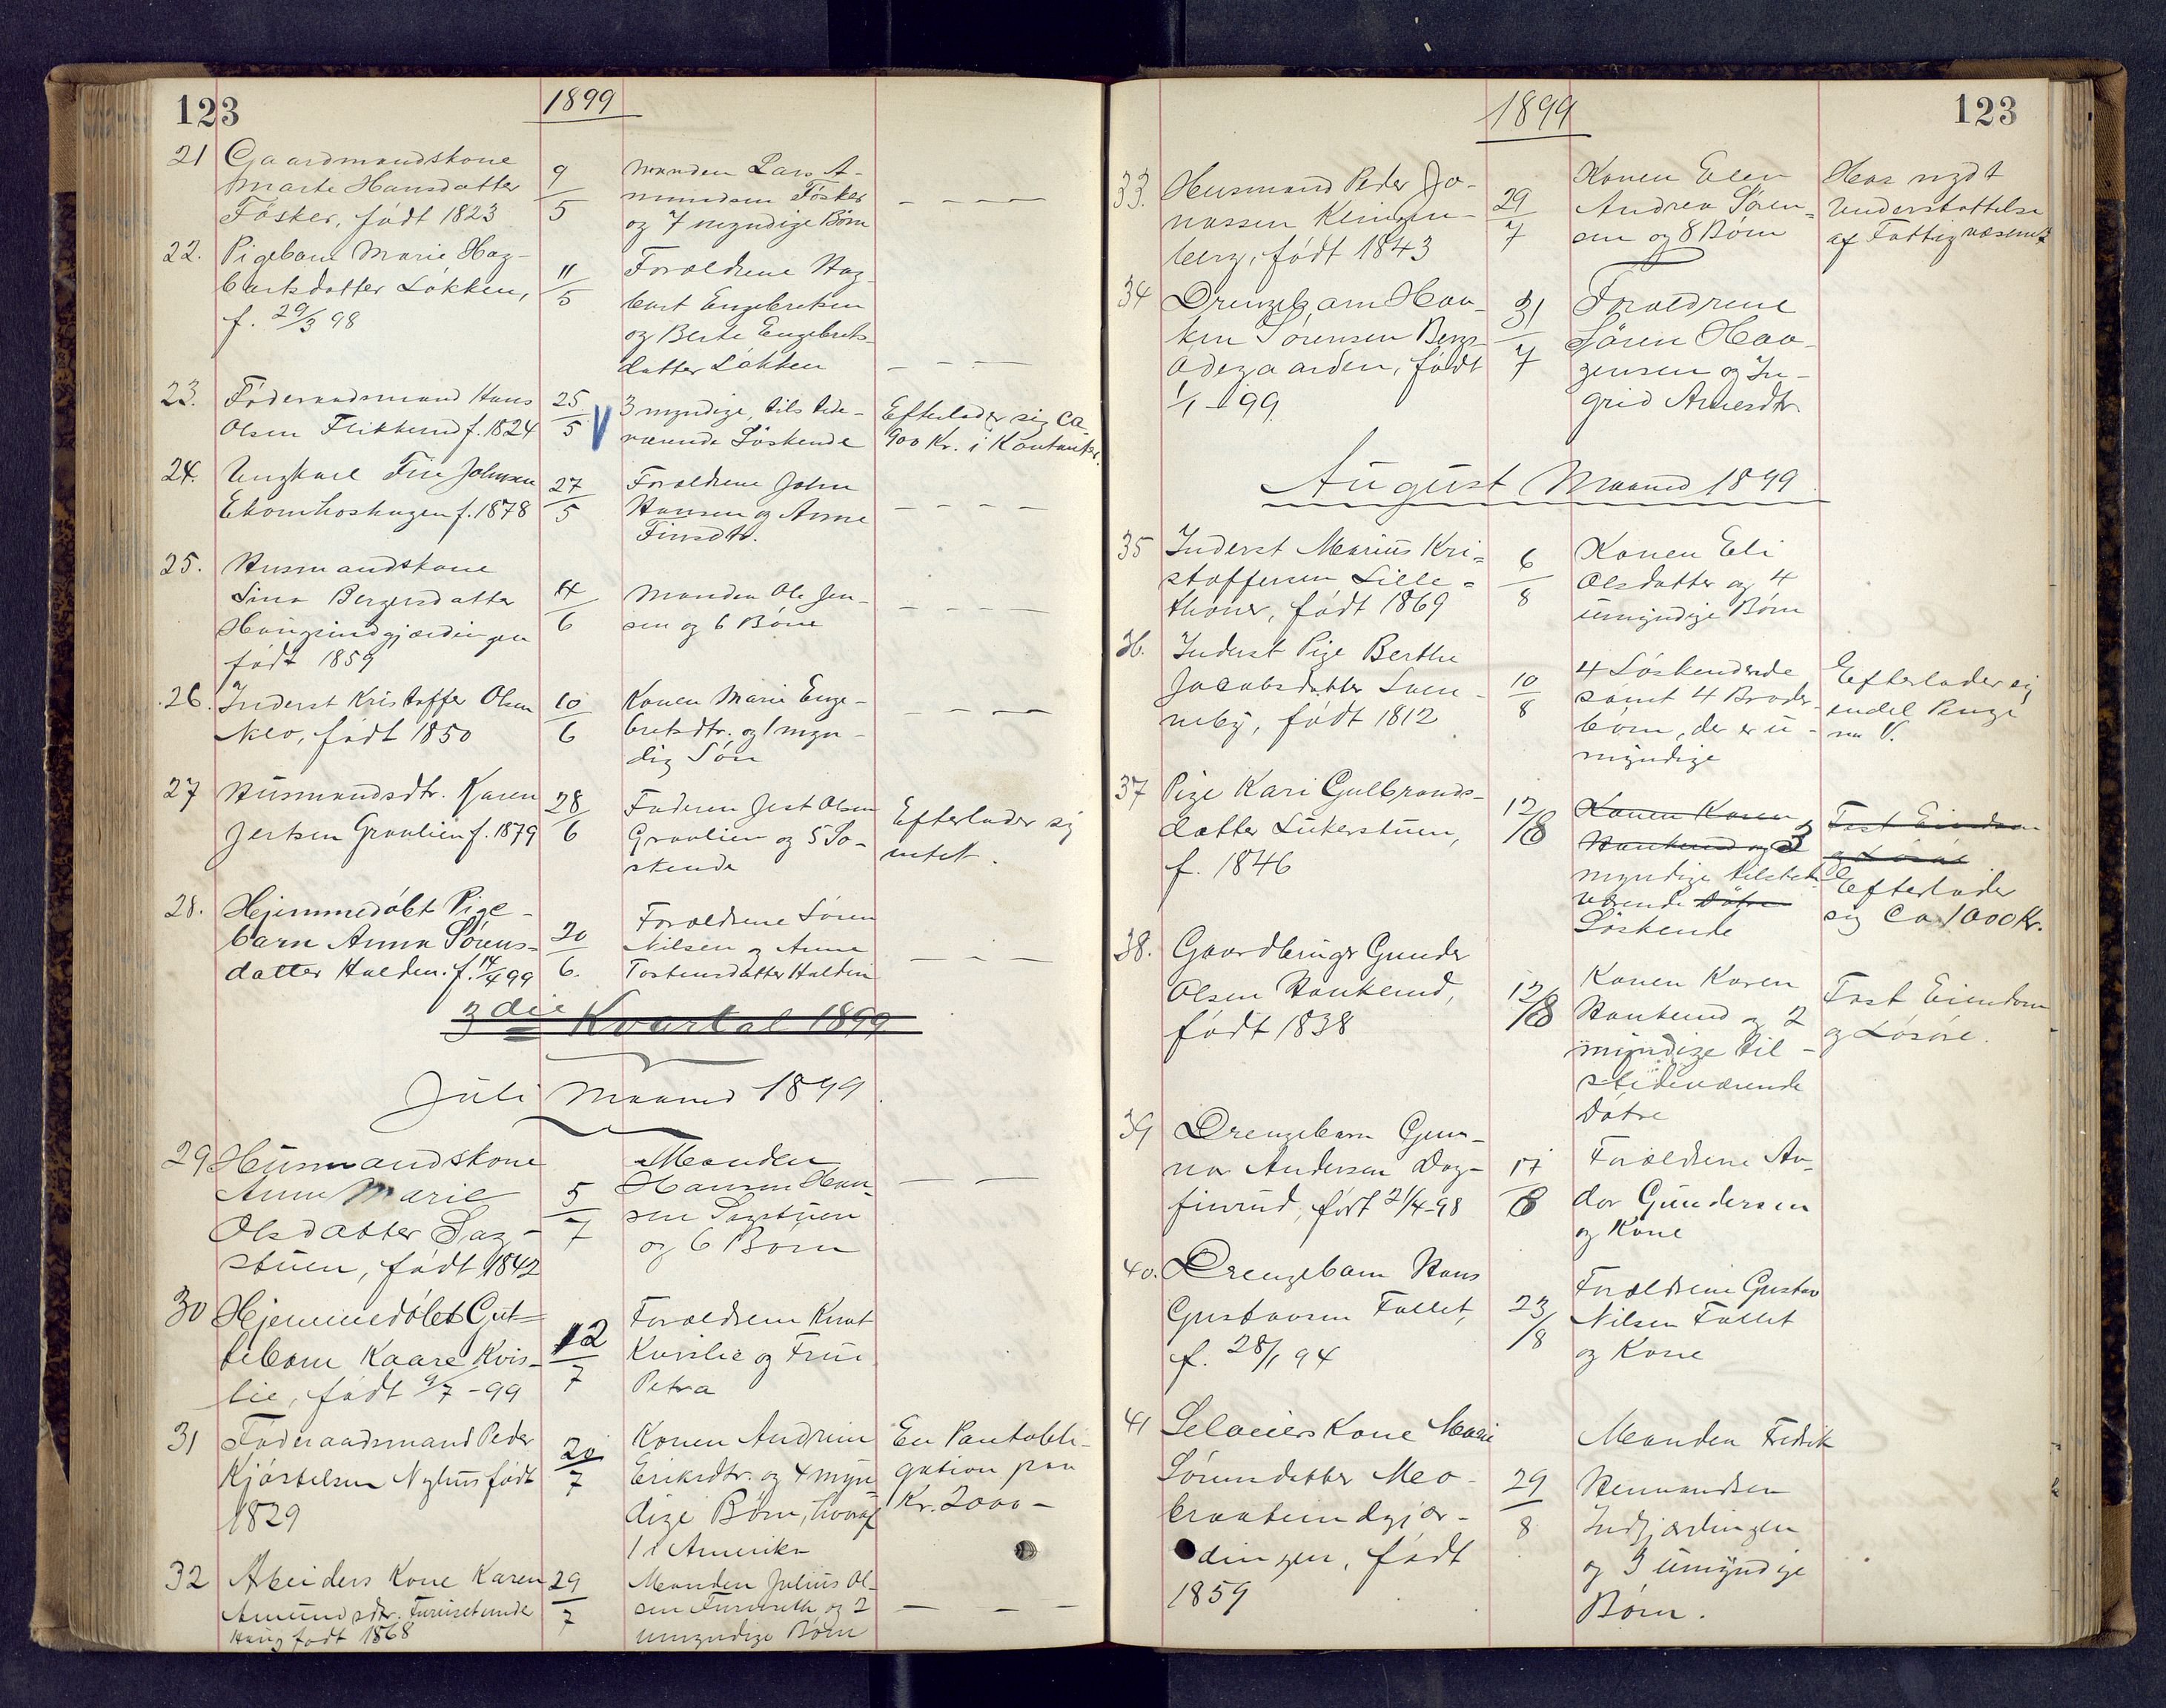 123
1899
21 Gaardmandskone
Marte Hansdatter
Fösker, født 1823
9/5
Manden Lars A-
mundsen Fösker
og 7 myndige Børn
— — — —
22. Pigebarn Marie Hag-
bartsdatter Løkken,
f. 29/3 98
11/5
Forældrene Hag-
bart Engebretsen
og Berte Engebrets-
datter Løkken
— — —
23. Föderaadsmand Hans
Olsen Flikkerud f. 1824
25/5
3 myndige, tilstede-
værende Söskende
Efterlader sig ca.
900 Kr. i Kontanter.
24. Ungkarl Fin Johnsen
Ekornhoshagen f. 1878
27/5
Forældrene John
Hansen og Anne
Finsdtr.
— — — —
25. Husmandskone
Sina Bergersdatter
Haugsindgjærdingen
født 1859
4/6
Manden Ole Jen-
sen og 6 Børn
— — — —
26. Inderst Kristoffer Olsen
Neo, født 1850
10/6
Konen Marie Enge-
bretsdtr. og 1 myn-
dig Sön
— — —
27 Husmandsdtr. Karen
Jertsen Graalien f. 1879
28/6
Faderen Jert Olsen
Graalien og 5 Sö-
skende
Efterlader sig
intet.
28. Hjemmedöbt Pige-
barn Anna Sörens-
datter Halden. f. 14/4 99
20/6.
Forældrene Sören
Nilsen og Anne
Tostensdatter Halden
— — — —
3die Kvartal 1899
Juli Maaned 1899.
29 Husmandskone
Anne Marie
Olsdatter Sag-
stuen, født 1842
5/7
Manden
Hansen Han-
sen Sagstuen
og 6 Børn
— — —
30 Hjemmedöbt Gut-
tebarn Kaare Kvis-
lie, født 9/7-99
12/7
Forældrene Knut
Kvislie og Frue
Petra
31 Föderaadsmand Peder
Kjöstelsen Nyhus født
1829
20/7
Konen Andrine
Eriksdtr. og 4 myn
dige Børn, hvoraf
1 i Amerika
En Pantobli-
gation paa
Kr. 2000 —
32 Arbeiders Kone Karen
Amundsdtr. Furuset under
Haug født 1868
29/7
Manden Julius Ol-
sen Furuseth og 2
umyndige Børn
— — —
1899
123
33. Husmand Peder Jo-
nassen Klingen-
berg, født 1843
29/7
Konen Elen
Andrea Sören-
sen og 8 Børn
Har nydt
Understøttelse
af Fattigvæsenet
34 Drengebarn Haa-
ken Sørensen Bergs-
ödegaarden, født
1/1-99
31/7
Forældrene
Sören Haa-
gensen og In-
grid Arnesdtr.
August Maaned 1899
35 Inderst Marius Kri-
stoffersen Lille-
thoner, født 1869
6/8
Konen Eli
Olsdatter og 4
umyndige Børn
36. Inderst Pige Berthe
Jacobsdatter Sven-
neby, født 1812
10/8
4 Söskendende
samt 4 Broder-
börn, der er u-
myndige
Efterlader sig
endel Penge
37 Pige Kari Gulbrands-
datter Lukerstuen,
f. 1846
12/8
Konen Karen
Haukerud og 3
myndige tilstede
værende Döttre
Söskende
Fast Eiendom
og Lösöre
Efterlader
sig Ca 1000 Kr.
38. Gaardbruger Gunder
Olsen Haukerud,
født 1838
12/8
Konen Karen
Haukerud og 2
myndige til-
stedeværende
Dötre
Fast Eiendom
og Lösöre.
39 Drengebarn Gun-
nar Andersen Dag-
finrud, født 21/4-98
17/8
Forældrene An-
dor Gundersen
og Kone
40. Drengebarn Hans
Gustavsen Fallet,
f. 28/1 94
23/8
Forældrene Gustav
Nilsen Fallet
og Kone
41 Selveiers Kone Marie
Sörensdatter Meo-
braateindgjær-
dingen, født
1859
29/8
Manden Fredrik
Hermandsen
Indgjærdingen
og 3 umyndige
Børn.